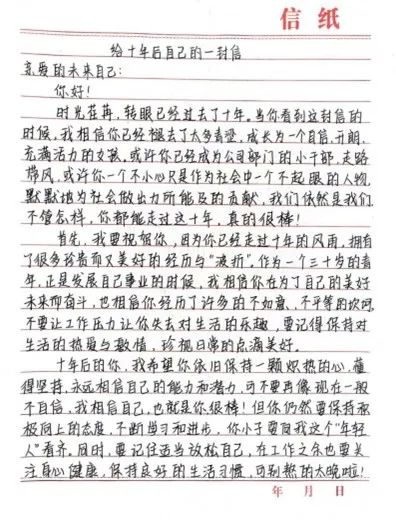 信纸
给十年后自己的一封信
亲爱的未来自己：
你好！
时光荏苒，转眼已经过去了十年。当你看到这封信的
时候，我相信你已经褪去了太多青涩，成长为一个自信、开朗、
充满活力的女孩。或许你已经成为公司部门的小干部，走路
带风，或许你一个不小心只是作为社会中一个不起眼的人物，
默默地为社会做出力所能及的贡献，我们依然是我们
不管怎样，你都能走过这十年，真的很棒！
首先，我要祝贺你，因为你已经走过十年的风雨，拥有
了很多珍贵而又美好的经历与“波折”。作为一个三十岁的青
年，正是发展自己事业的时候，我相信你在为了自己的美好
未来而奋斗，也相信你经历了许多的不如意、不平等的坎坷，
不要让工作压力让你失去对生活的乐趣，要记得保持对
生活的热爱与激情，珍视日常的点滴美好。
十年后的你，我希望你依旧保持一颗炽热的心，懂
得坚持，永远相信自己的能力和潜力，可不要再像现在一般
不自信，我相信自己，也就是你很棒！但你仍然要保持积
极向上的态度，不断学习和进步，你小子要向我这个“年轻
人”看齐。同时，要记住适当放松自己，在工作之余也要关
注身心健康，保持良好的生活习惯，可别熬的太晚啦！
年 月 日